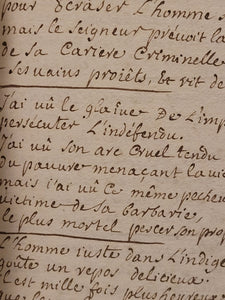 pour Ecraser L'homme s
mais le seigneur prévoit la
de sa Cariere Criminelle
ses vains projêts, Et rit de
J'ai vû le glaive De L'imp
persecuter L'indéfendu.
J'ai vû son arc Cruel tendu
du pauvre menaçant la vie
mais j'ai vû ce même pecheur
victime de sa barbarie,
le plus mortel percer son prop
L'homme juste dans L'indige
goûte un repos delicieux.
il est mille fois plus heureux